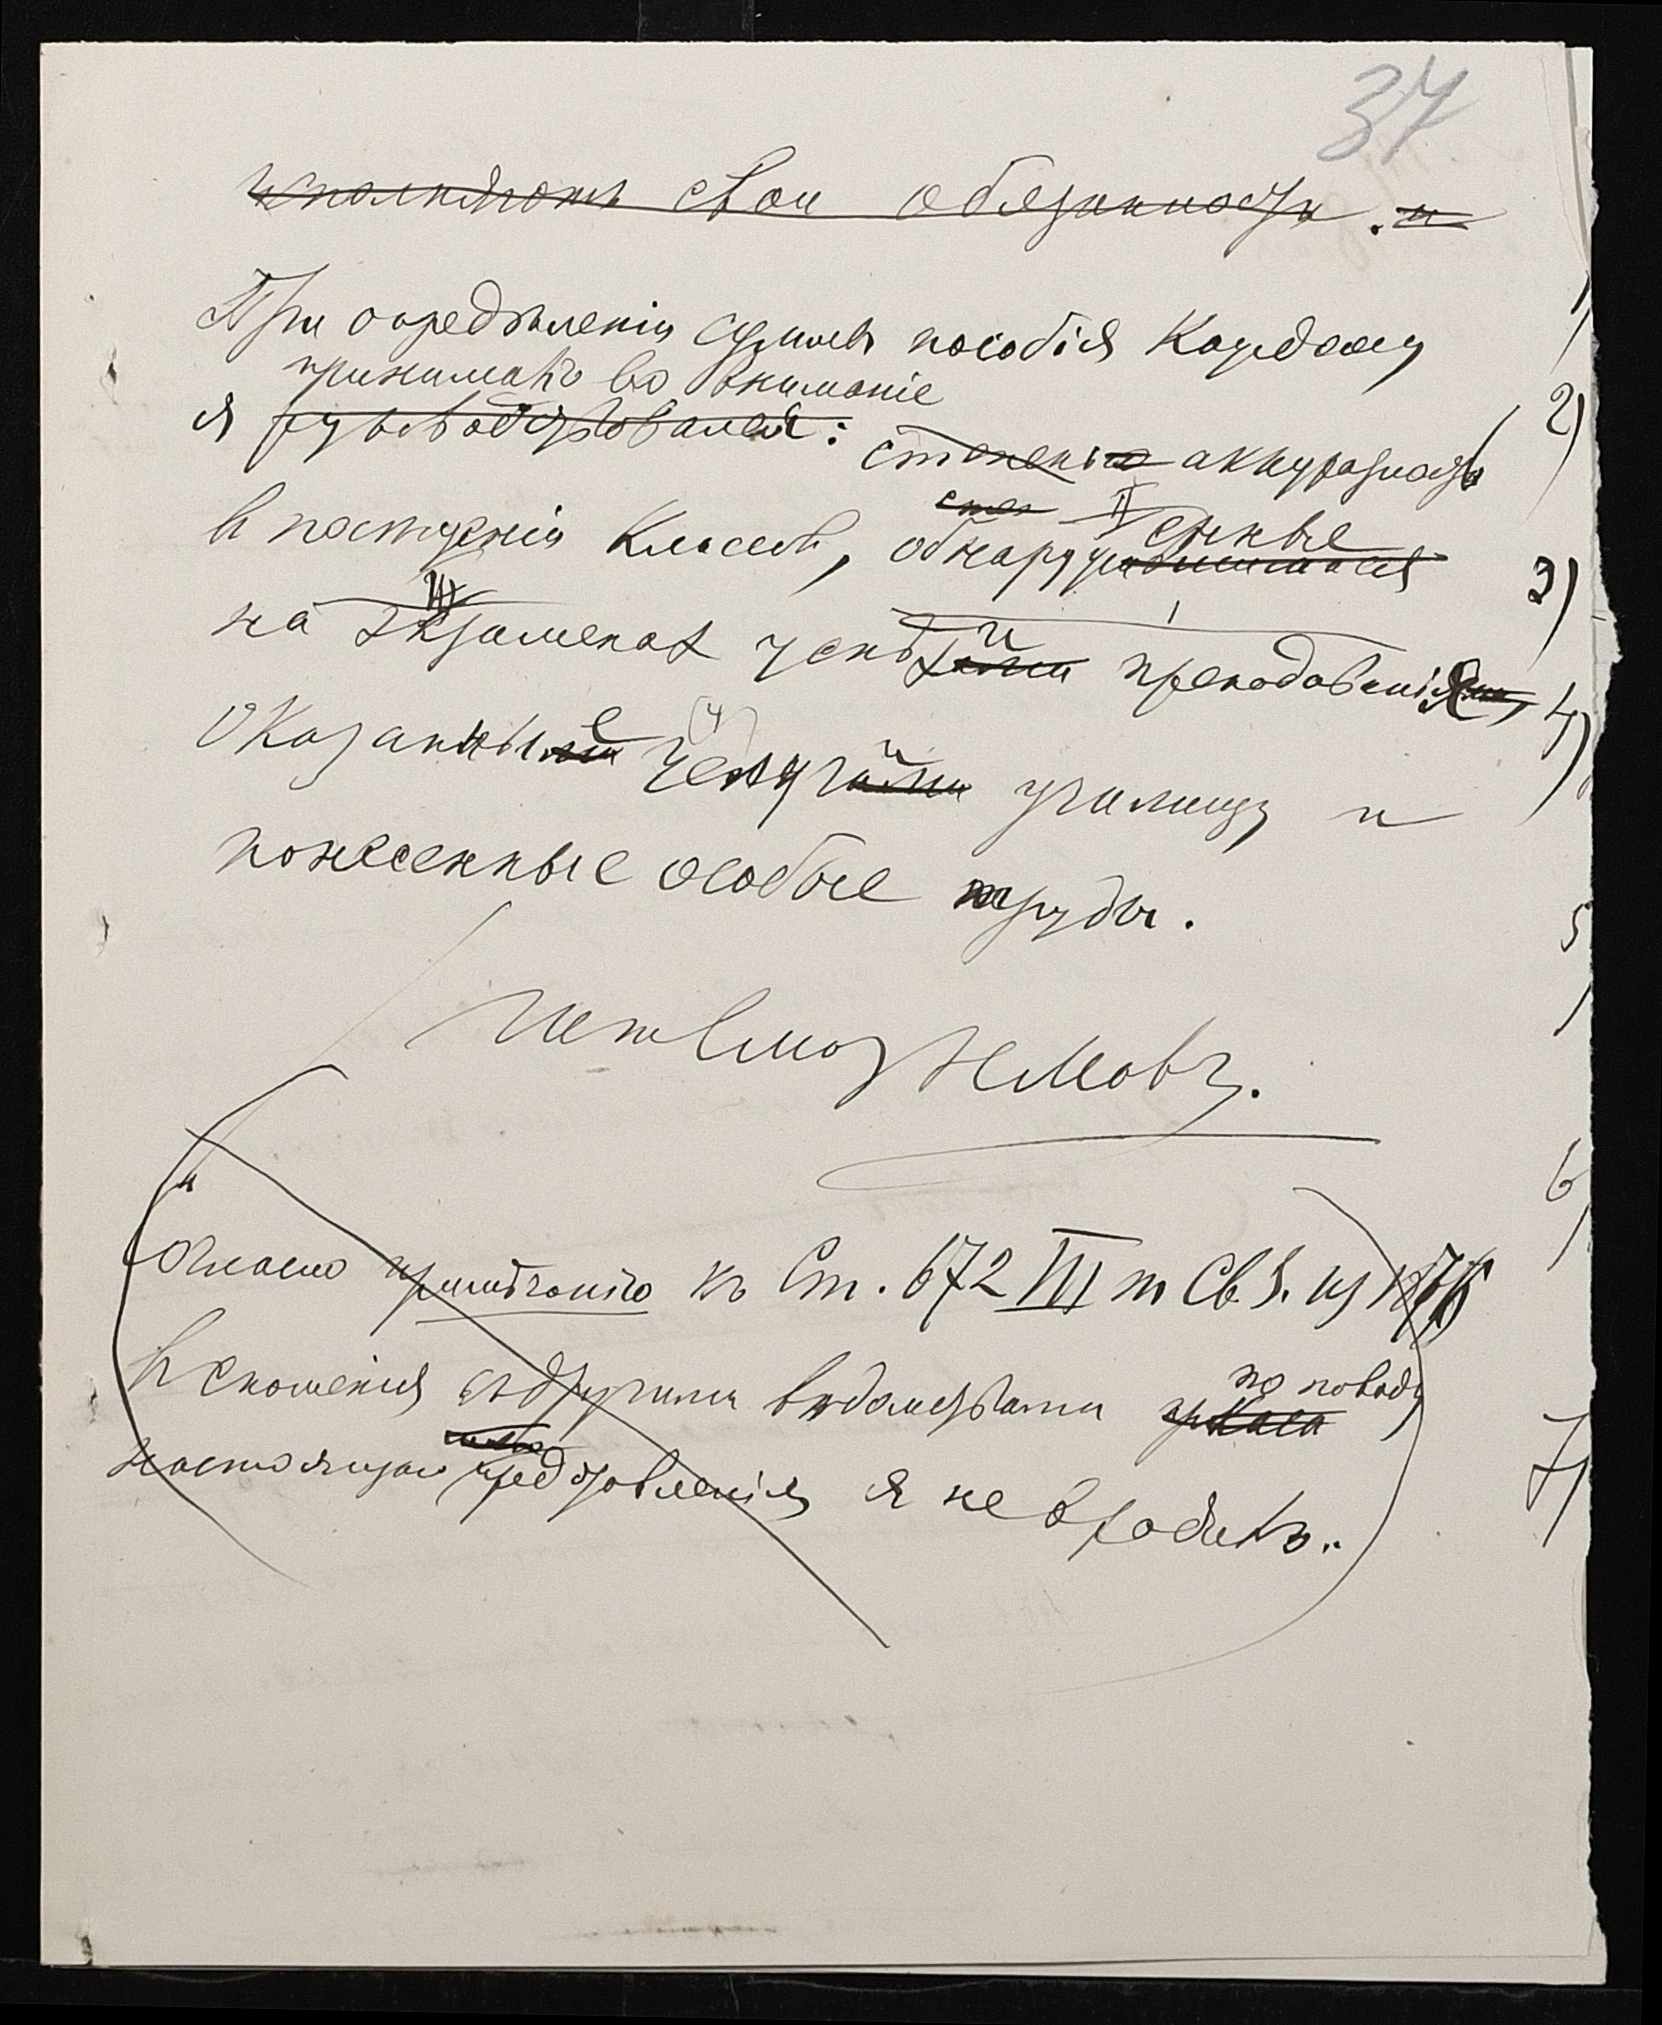 37
исполняютъ свои обязанности. и
При определенiи суммы пособiя Каждому
принималъ во вниманiе
я руководствовался: степень аккуратность
степ
въ посещенiи Классовъ, обнаружившiяся
на экзаменах успехи преподаванiя,
Оказанные услуги училищу и
понесенные особые труды.
Согласно примѣчанiю къ Ст. 672 III т Св. З. из 1876
въ сношенiя съ другими вѣдомствами по поводу
настоящаго представленiя я не входилъ.
1)
2)
3)
4)
5
6
7)